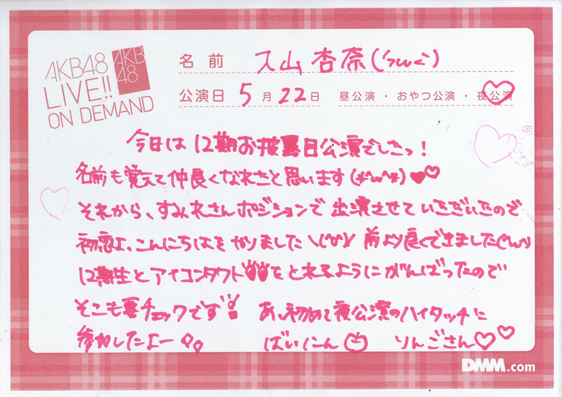 AKB48
LIVE!!
ON DEMAND
AKB
48
名前 入山杏奈(´ω`)
公演日 5月22日 昼公演・おやつ公演・夜公演
今日は12期お披露目公演でしたっ!
名前も覚えて仲良くなれたと思います(*´ω`*)♥♡
それから、すみれさんポジションで出演させていただいたので
初恋よ、こんにちはをやりました\(^o^)/ 前より良くできました(´ω`)
12期生とアイコンタクトをとれるようにがんばったので
そこも要チェックです!! あ、初めて夜公演のハイタッチに
参加したよー ばいにん りんごさん♡♡
DMM.com